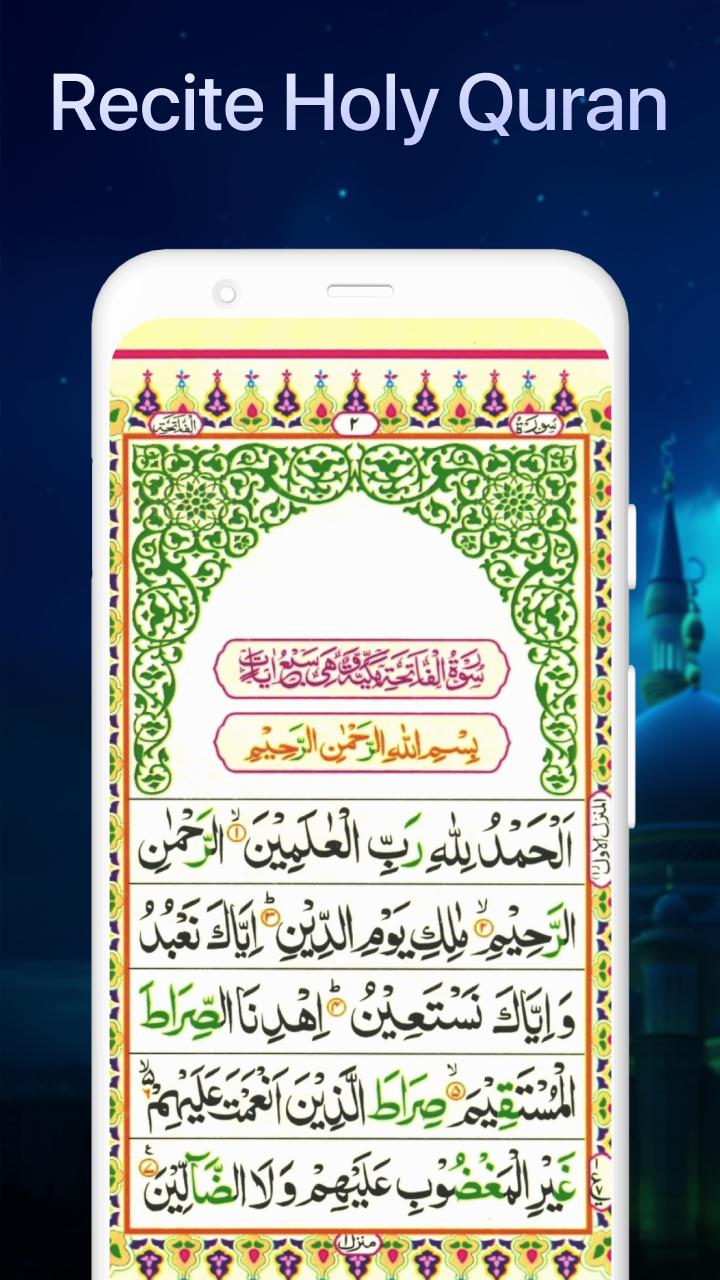 Recite Holy Quran
سُورَةُ
٢
الْفَاتِحَة
سُوْرَةُ الْفَاتِحَةِ مَكِّيَّةٌ وَّهِىَ سَبْعُ اٰيَاتٍ
بِسْمِ اللّٰهِ الرَّحْمٰنِ الرَّحِيْمِ
اَلْحَمْدُ لِلّٰهِ رَبِّ الْعٰلَمِيْنَ ۙ ١ الرَّحْمٰنِ
الرَّحِيْمِ ۙ ٢ مٰلِكِ يَوْمِ الدِّيْنِ ؕ ٣ اِيَّاكَ نَعْبُدُ
وَاِيَّاكَ نَسْتَعِيْنُ ؕ ٤ اِهْدِنَا الصِّرَاطَ
الْمُسْتَقِيْمَ ۙ ٥ صِرَاطَ الَّذِيْنَ اَنْعَمْتَ عَلَيْهِمْ ۙ۵ ٦
غَيْرِ الْمَغْضُوْبِ عَلَيْهِمْ وَلَا الضَّآلِّيْنَ ٧
المنزل الاول
منزل ۱